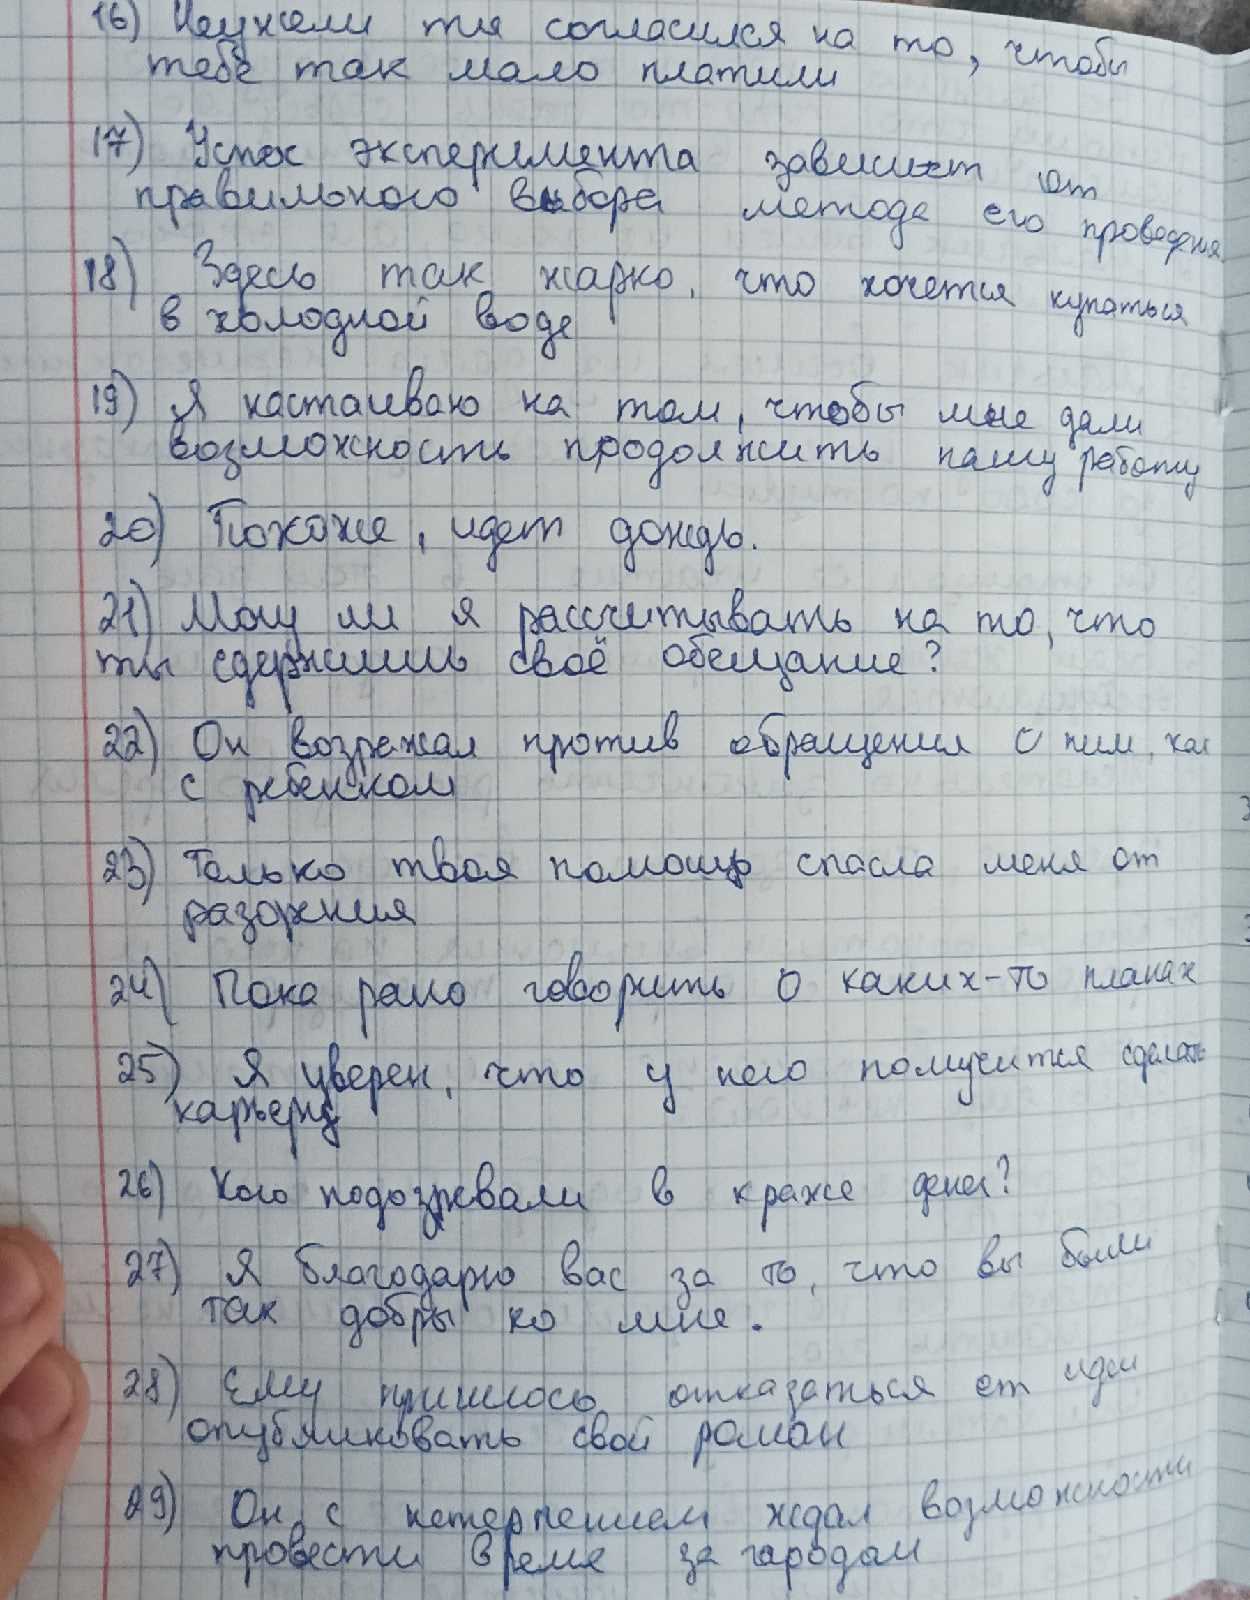 16) Неужели ты согласился на то, чтобы
тебе так мало платили
17) Успех эксперимента зависит от
правильного выбора метода его проведения
18) Здесь так жарко, что хочется купаться
в холодной воде
19) Я настаиваю на том, чтобы мне дали
возможность продолжить нашу работу
20) Похоже, идет дождь.
21) Могу ли я рассчитывать на то, что
ты сдержишь своё обещание?
22) Он возражал против обращения с ним, как
с ребенком
23) Только твоя помощь спасла меня от
разорения
24) Пока рано говорить о каких-то планах
25) Я уверен, что у него получится сделать
карьеру
26) Кого подозревали в краже денег?
27) Я благодарю вас за то, что вы были
так добры ко мне.
28) Ему пришлось отказаться от идеи
опубликовать свой роман
29) Он с нетерпением ждал возможности
провести время за городом